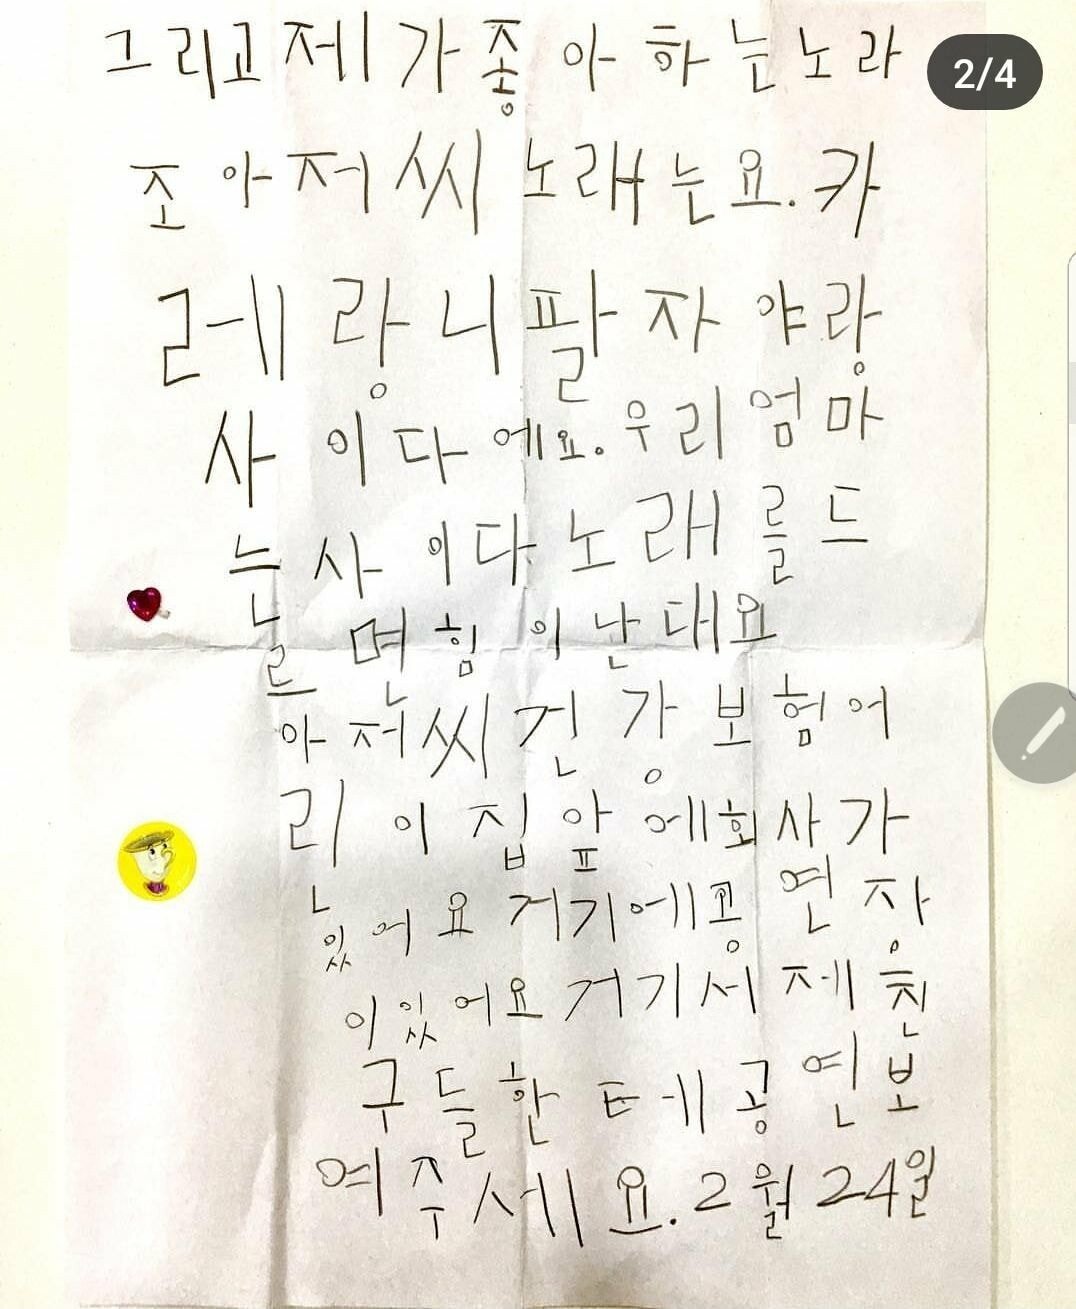 2/4
그리고 제가 좋아하는 노라
조아저씨 노래는요. 카
레랑 니팔자야랑
사이다에요. 우리 엄마
는 사이다 노래를 드
르면 힘이 난대요
아저씨 건강보험어
린이집 앞에 회사가
있어요 거기에 공연장
이 있어요 거기서 제 친
구들한테 공연 보
여주세요. 2월 24일